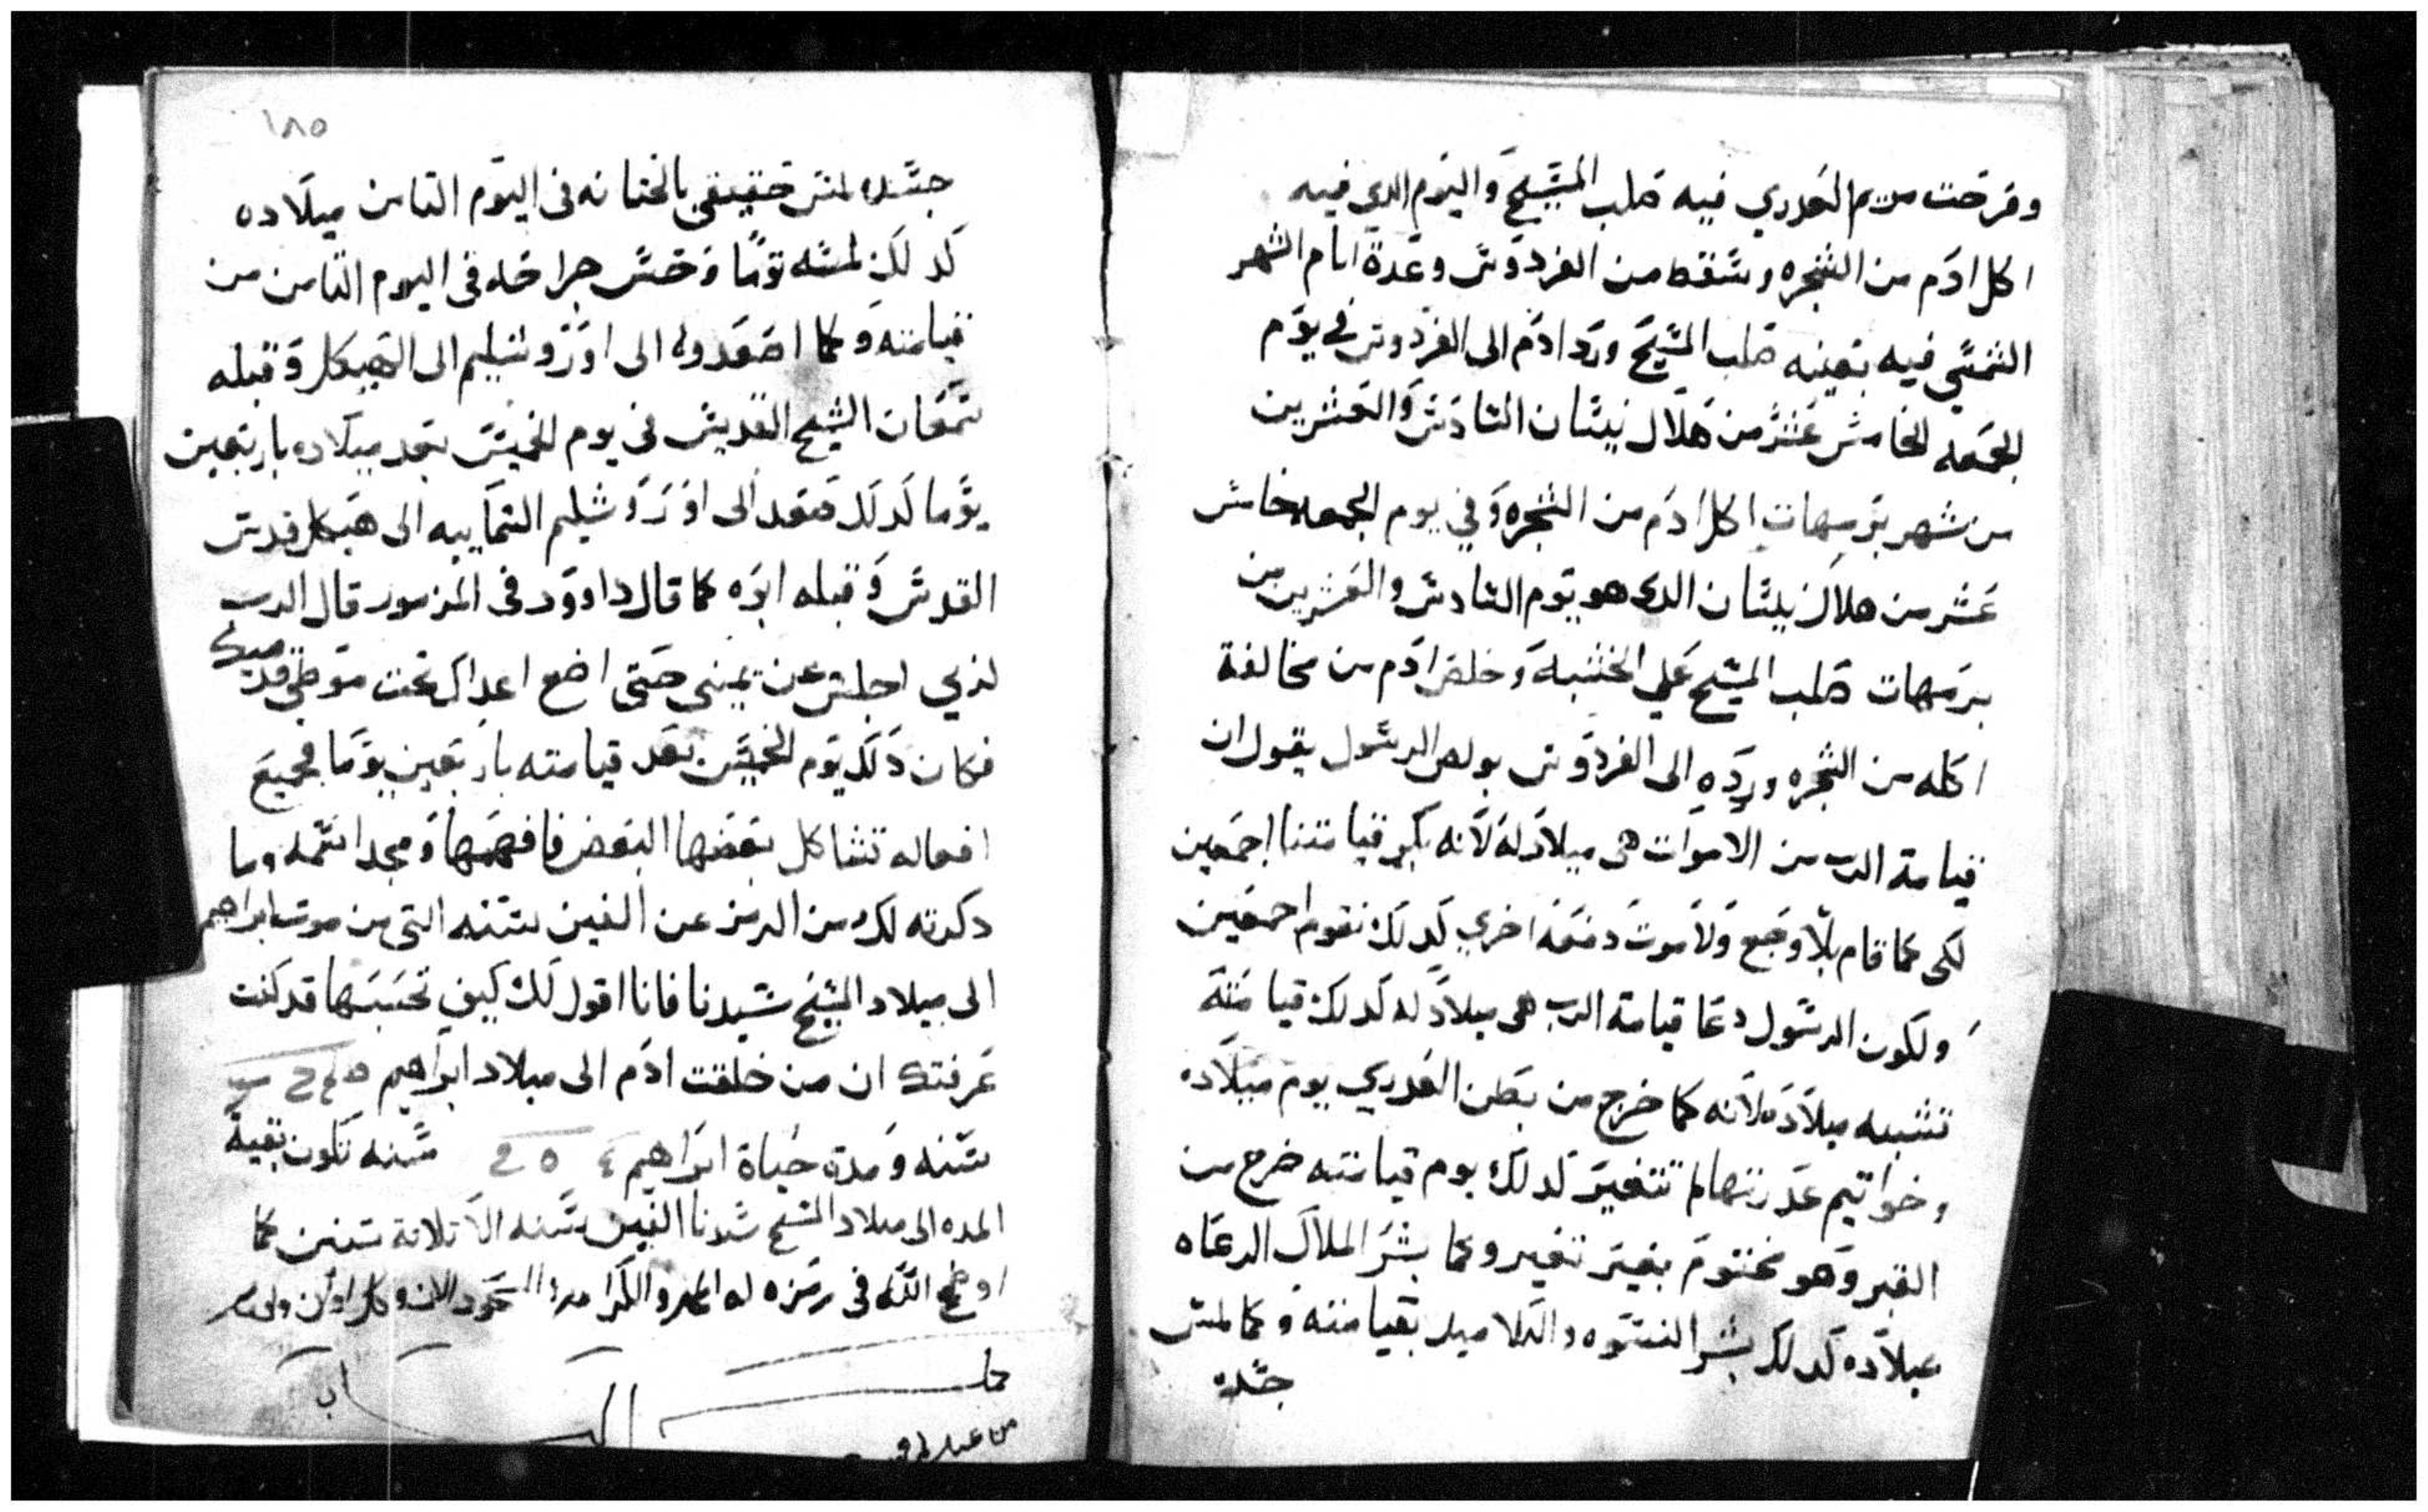 وفرحت مريم العدري فيه صلب المسيح واليوم الدي فيه
اكل ادم من الشجره وسقط من الفردوس وعدة ايام الشهر
الشمسي فيه بعينه صلب المسيح ورد ادم الى الفردوس في يوم
الجمعه الخامس عشر من هلال نيسان السادس والعشرين
من شهر برمهات اكل ادم من الشجره وفي يوم الجمعه خامس
عشر من هلال نيسان الدى هو يوم السادس والعشرين من
برمهات صلب المسيح علي الخشبه وخلص ادم من مخالفة
اكله من الشجره ورده الى الفردوس بولص الرسول يقول ان
قيامة الرب من الاموات هى ميلاد له لانه بكر قيامتنا اجمعين
لكى كما قام بلا وجع ولا موت دفعه اخري كدلك نقوم اجمعين
ولكون الرسول دعا قيامة الرب هى ميلاد له كدلك قيامته
تشبه ميلاده لانه كما خرج من بطن العدري يوم ميلاده
وخواتيم عدرتها لم تتغير كدلك يوم قيامته خرج من
القبر وهو مختوم بغير تغير وكما بشر الملاك الرعاه
بميلاده كدلك بشر النسوه والتلاميد بقيامته وكما لمس
جسده
١٨٥
جسده لمس حقيقي بالختانه فى اليوم التامن ميلاده
كدلك لمسه توما وحس جراحه فى اليوم التامن من
قيامته وكما اصعدوه الى اوروشليم الى الهيكل وقبله
سمعان الشيح القديس فى يوم الخميس بعد ميلاده باربعين
يوما كدلك صعد الى اورشليم السماييه الى هيكل قدس
القدس وقبله ابوه كما قال داوود فى المزمور قال الرب
لربي اجلس عن يمينى حتى اضع اعداك تحت موطي قدميك
فكان دلك يوم الخميس بعد قيامته باربعين يوما فجميع
افعاله تشاكل بعضها البعض فافهمها ومجد اسمه وما
دكرته لك من الرمز عن الفين سنه التى من موت ابراهيم
الى ميلاد المسيح سيدنا فانا اقول لك كيف تحسبها قد كنت
عرفتك ان من خلقت ادم الى ميلاد ابراهيم
سنه ومدة حياة ابراهيم سنه تكون بقية
المده الى ميلاد المسيح سيدنا الفين سنه الا تلاتة سنين كما
اوضح الله فى رمزه له المجد والكرامه والسجود الان وكل اوان